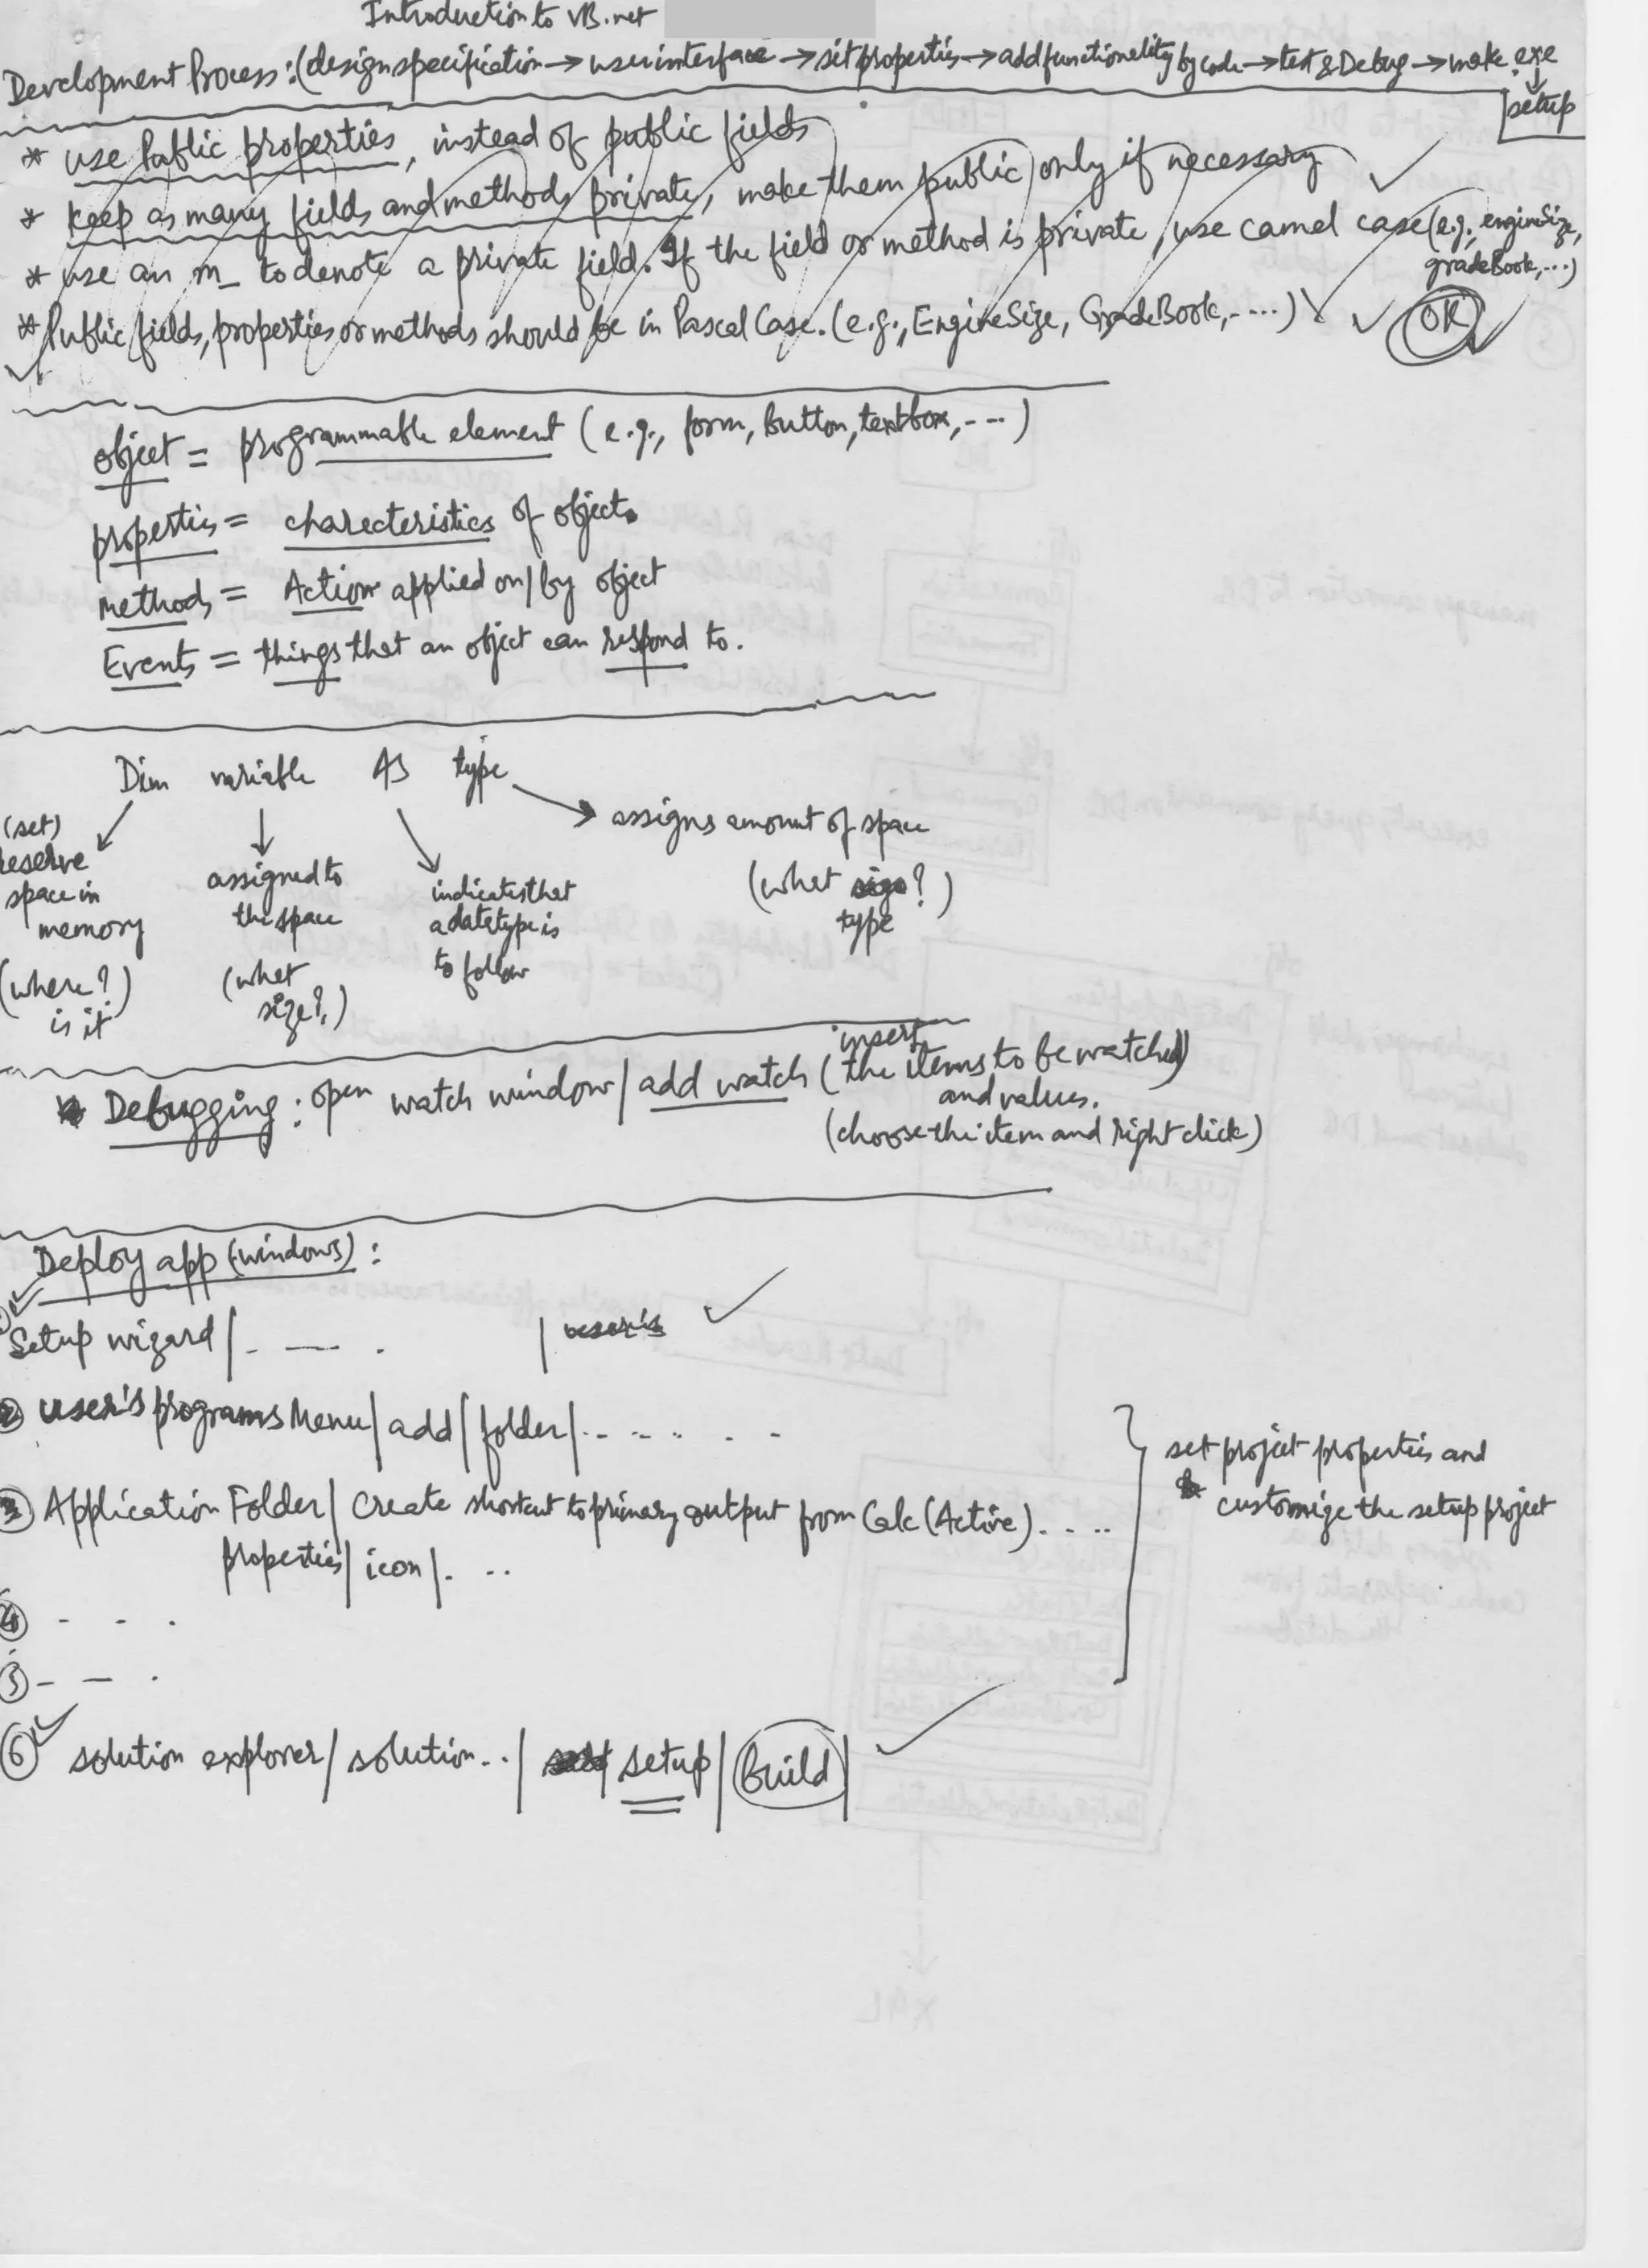 Introduction to VB.net
Development Process:(design specification → user interface → set properties → add functionality by code → test & Debug → make .exe
setup
* use Public properties, instead of public fields
* keep as many fields and methods private, make them public only if necessary
* use an m_ to denote a private field. If the field or method is private, use camel case (e.g., engineSize,
gradeBook,...)
* Public fields, properties or methods should be in Pascal Case. (e.g., EngineSize, GradeBook,....)
OK
object = programmable element (e.g., form, button, textbox,...)
properties = charecteristics of object.
methods = Action applied on/by object
Events = things that an object can respond to.
Dim variable As type
assigns amount of space
(what type?)
(set)
reserve
space in
memory
(where?)
is it
assigned to
the space
(what
size?)
indicates that
a datatype is
to follow
* Debugging: open watch window/ add watch (insert the items to be watched)
and values.
(choose the item and right click)
Deploy app (windows):
Setup wizard/. — . /
② user's programs Menu/ add/ folder/. . . . . .
③ Application Folder/ Create shortcut to primary output from Calc (Active)....
properties/ icon/. ..
④ - - .
⑤ - — .
set project properties and
customize the setup project
⑥ solution explorer/ solution../ setup/ Build/